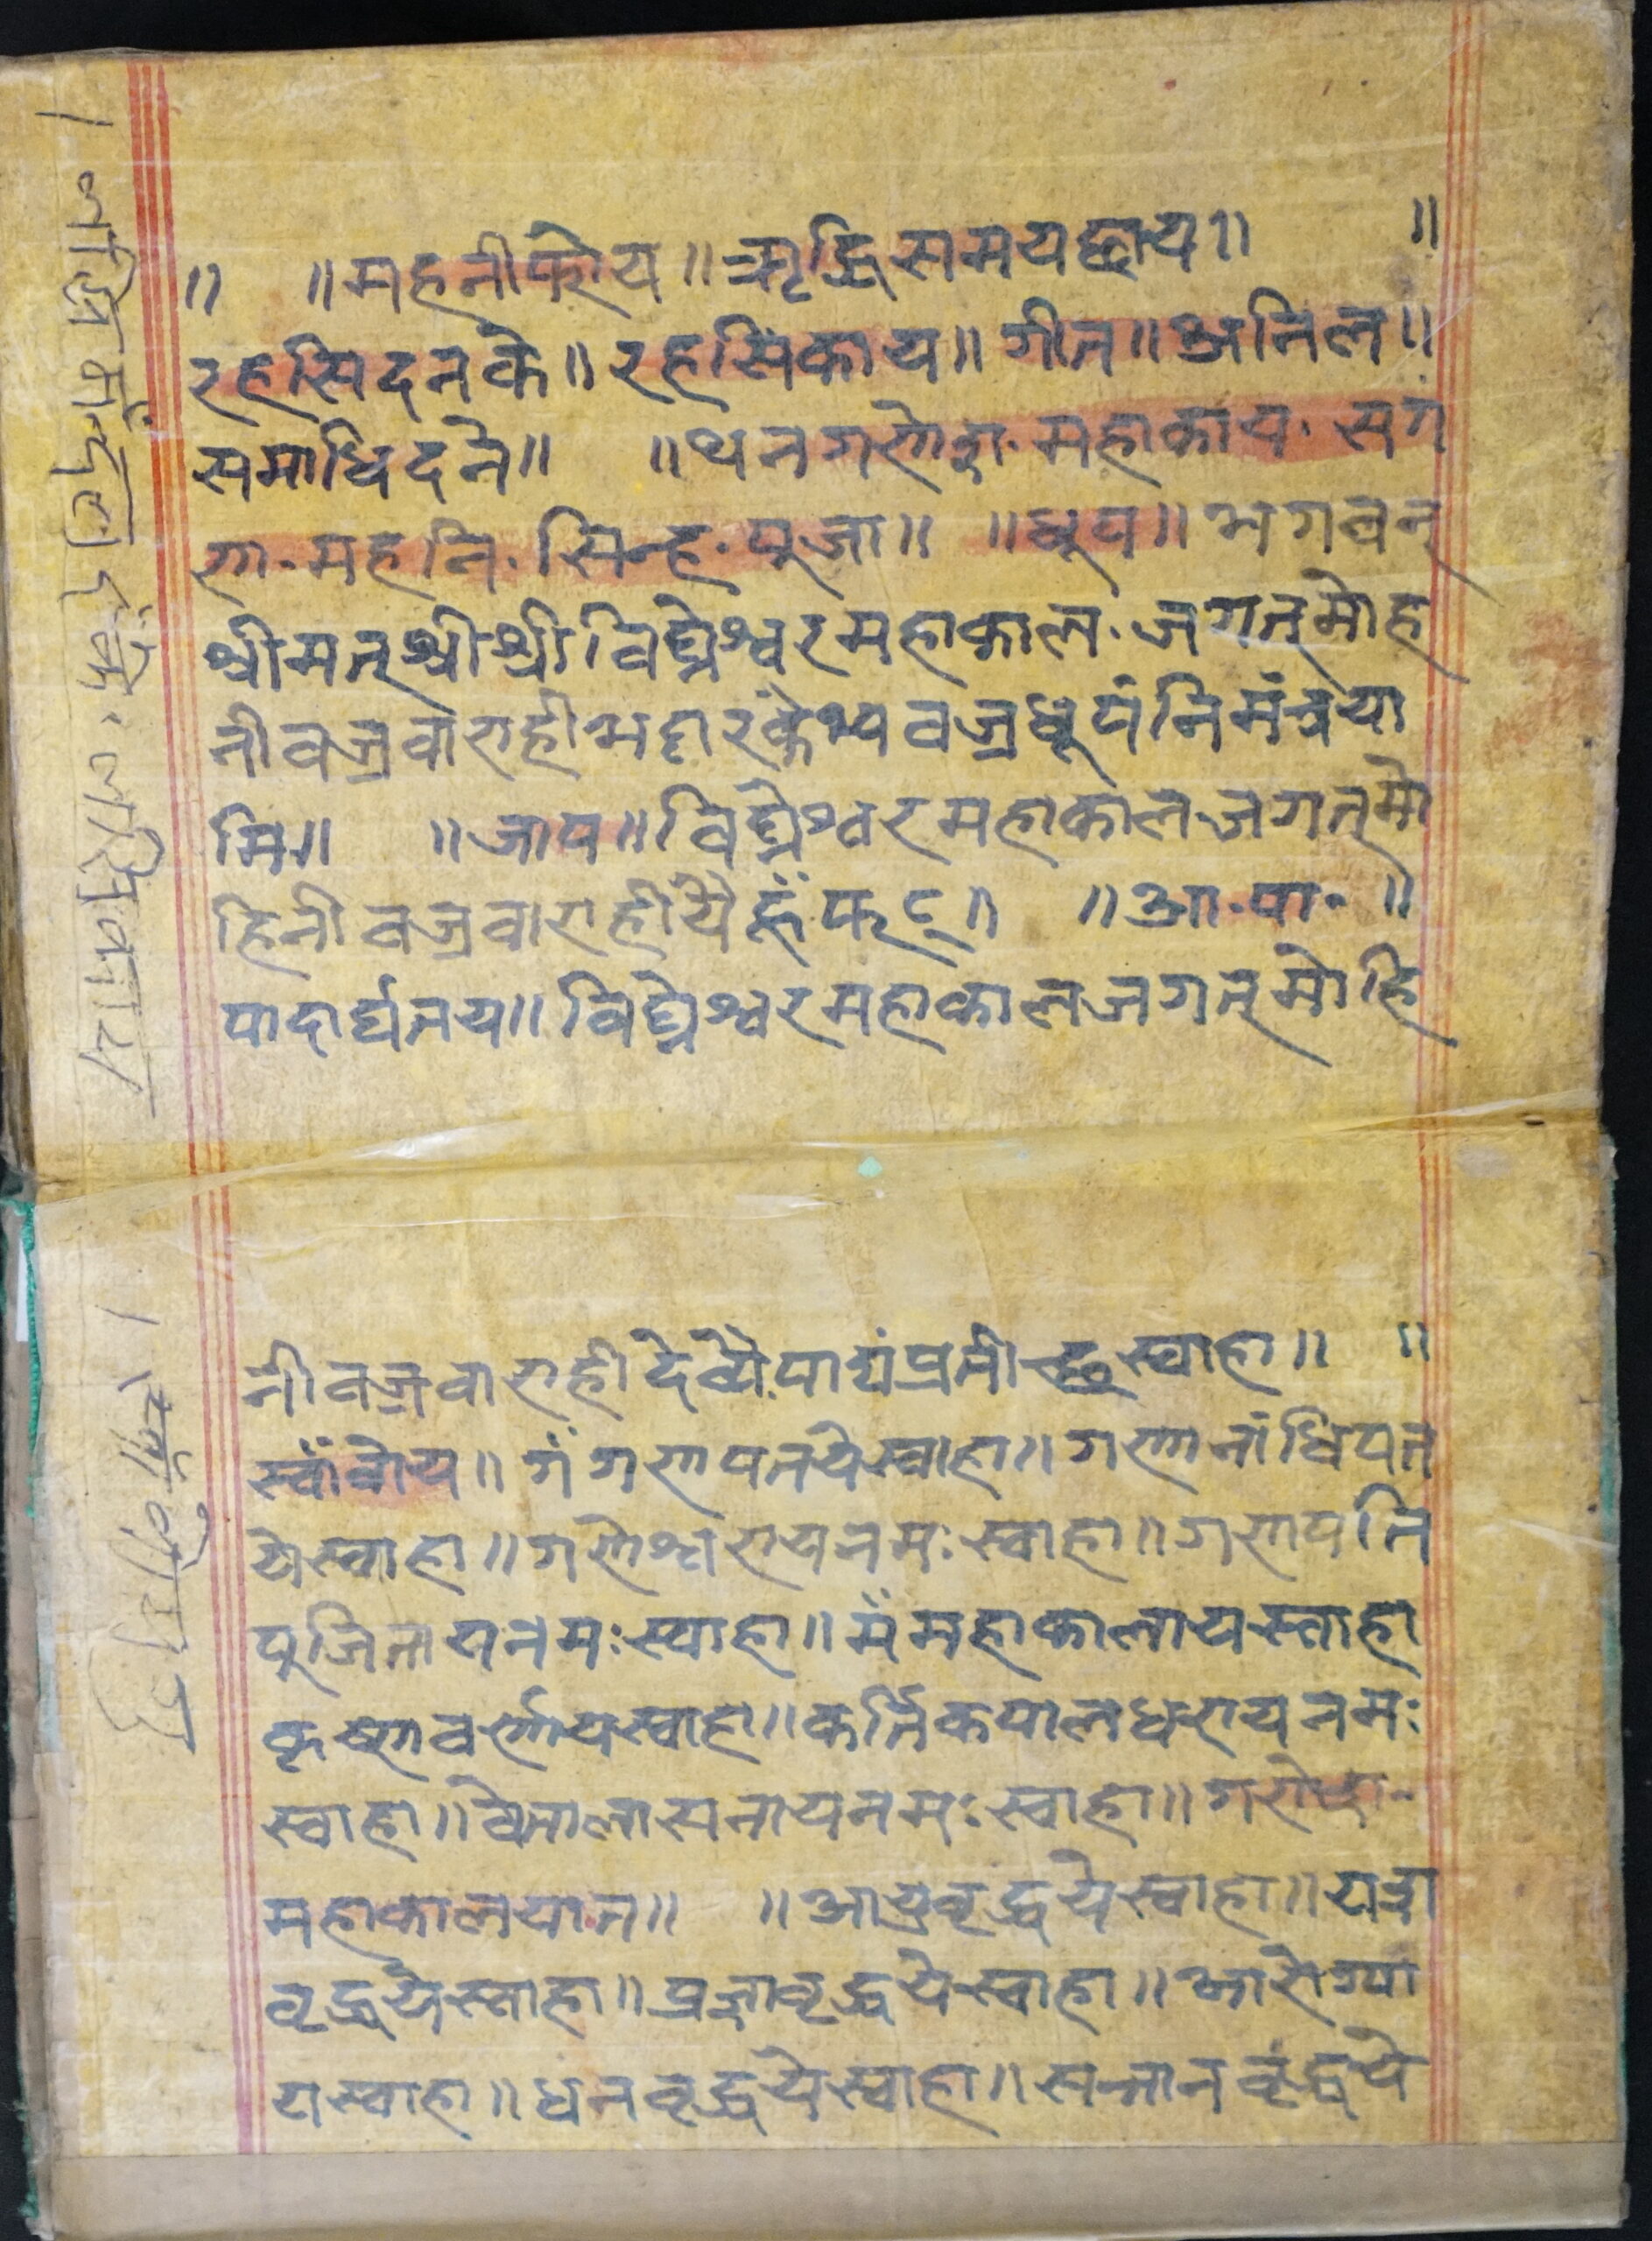 ॥ ॥ महनीफोय ॥ ऋद्धि समय छाय ॥ ॥
रहसि दनके ॥ रहसिंकाय ॥ गीत ॥ अनिल ॥
समाधि दने ॥ ॥ थन गणेश. महाकाय. सग
ण. महनि. सिन्ह. पूजा ॥ ॥ धूप ॥ भगवन्
श्रीमत् श्रीश्रीविघ्नेश्वर महाकाल. जगत्मोह
नी वज्रवाराही भट्टारकेभ्य वज्रधूपं निमंत्रया
मि ॥ ॥ जाप ॥ विघ्नेश्वर महाकाल जगत्मो
हिनी वज्रवाराहीयै हूँ फट् ॥ ॥ आ. पा. ॥
पादार्घतय ॥ विघ्नेश्वर महाकाल जगत्मोहि
नी वज्रवाराही देव्यै पाद्यं प्रतीच्छ स्वाहा ॥ ॥
स्वाँवोय ॥ गँ गणपतये स्वाहा ॥ गणनांधिपत
ये स्वाहा ॥ गणेश्वाराय नमः स्वाहा ॥ गणपति
पुजिताय नमः स्वाहा ॥ मँ महाकालाय स्वाहा
कृष्णवर्णाय स्वाहा ॥ कर्तिकपालधराय नमः
स्वाहा ॥ वेतालासनाय नमः स्वाहा ॥ गणेश.
महाकालयात ॥ ॥ आयुवृद्धये स्वाहा ॥ यश
वृद्धये स्वाहा ॥ प्रज्ञावृद्धये स्वाहा ॥ आरोग्या
य स्वाहा ॥ धनवृद्धये स्वाहा ॥ सन्तानवृद्धये